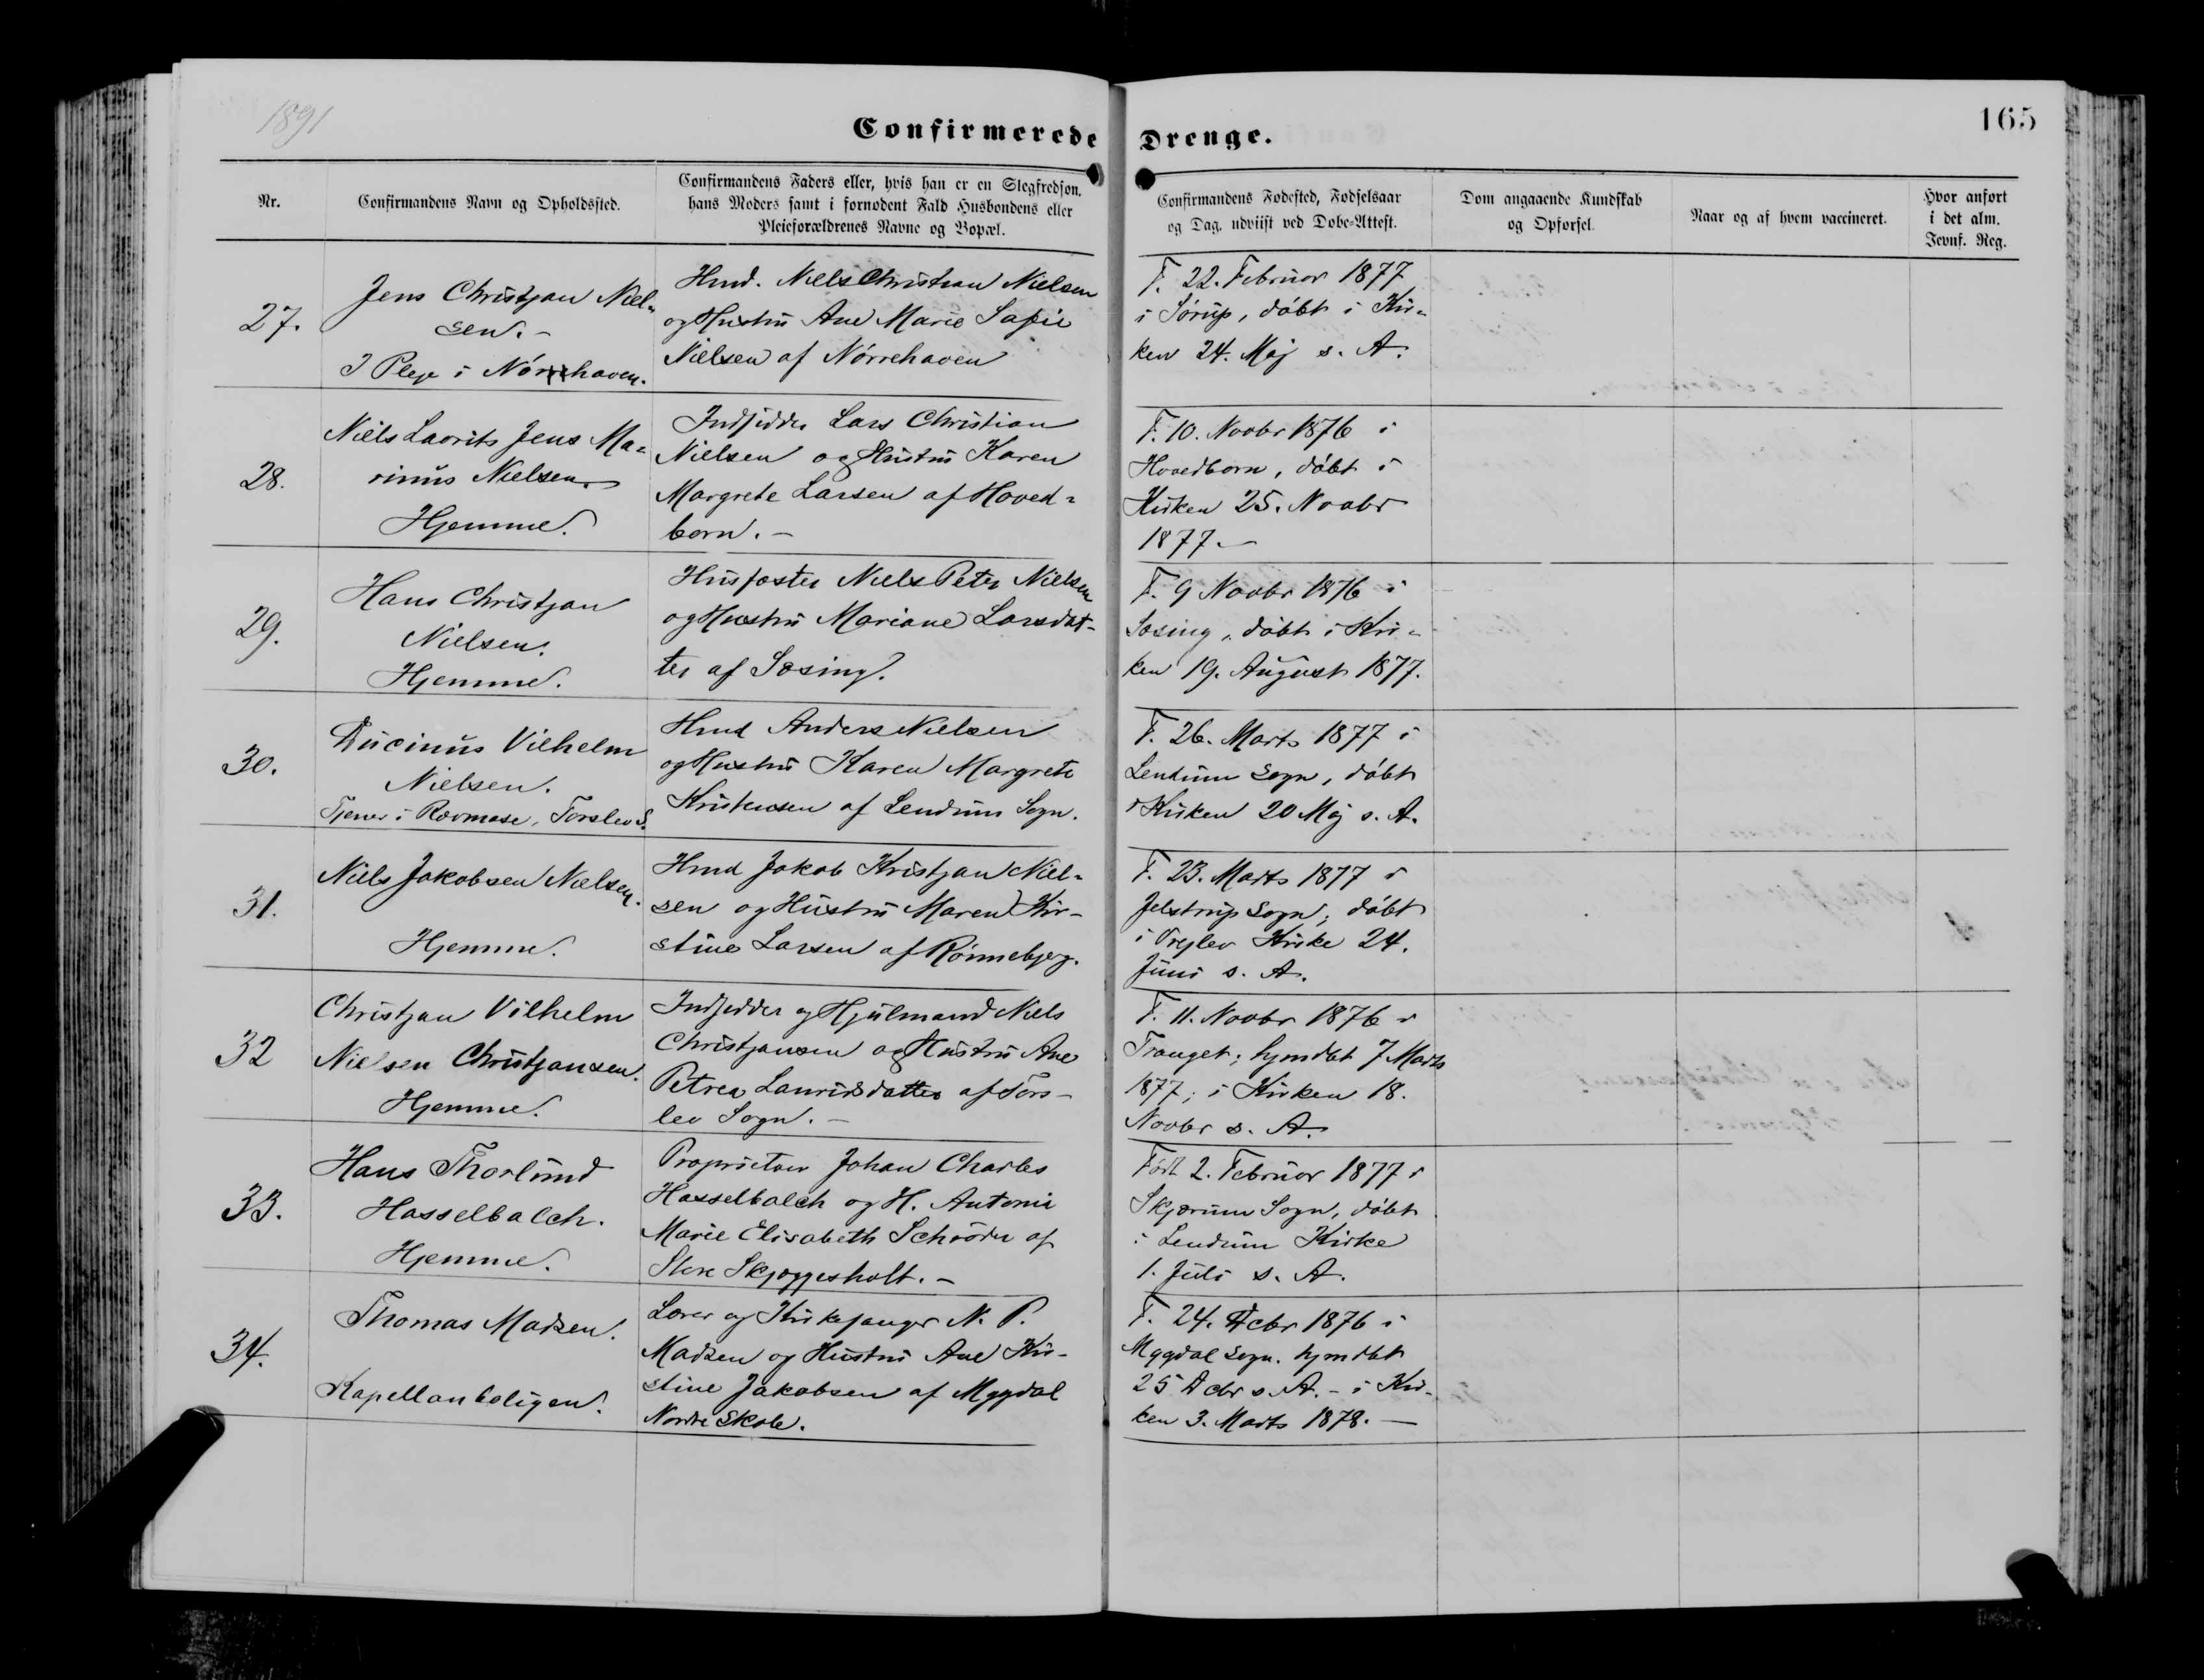 1891
Confirmerede Drenge.
165
Nr.
Confirmandens Navn og Opholdssted.
Confirmandens Faders eller, hvis han er en Slegfredsøn,
hans Moders samt i fornødent Fald Husbondens eller
Pleieforældrenes Navne og Bopæl.
Confirmandens Fødested, Fødselsaar
og Dag, udviist ved Døbe-Attest.
Dom angaaende Kundskab
og Opførsel.
Naar og af hvem vaccineret.
Hvor anført
i det alm.
Jevnf. Reg.
27.
Jens Christjan Niel-
sen. -
I Pleje i Nørrehaven.
Hmd. Niels Christian Nielsen
og Hustru Ane Marie Sofie
Nielsen af Nørrehaven
F. 22. Februar 1877
i Sørup, døbt i Kir-
ken 24. Maj s. A.
28.
Niels Lavrits Jens Ma-
rinus Nielsen.
Hjemme.
Indsidder Lars Christian
Nielsen og Hustru Karen
Margrete Larsen af Hoved-
born. -
F. 10. Novbr 1876 i
Hovedborn, døbt i
Kirken 25. Novbr
1877. -
29.
Hans Christjan
Nielsen.
Hjemme.
Husfæster Niels Peter Nielsen
og Hustru Mariane Larsdat-
ter af Sæsing.
F. 9 Novbr 1876 i
Sæsing, døbt i Kir-
ken 19. August 1877.
30.
Lucinus Vilhelm
Nielsen.
Tjener i Rævmose, Torslev S.
Hmd Anders Nielsen
og Hustru Karen Margrete
Kristensen af Lendum Sogn.
F. 26. Marts 1877 i
Lendum Sogn, døbt
i Kirken 20 Maj s. A.
31.
Niels Jakobsen Nielsen.
Hjemme.
Hmd Jakob Kristjan Niel-
sen og Hustru Maren Kir-
stine Larsen af Rønnebjerg.
F. 23. Marts 1877 i
Jelstrup Sogn; døbt
i Vrejlev Kirke 24.
Juni s. A.
32
Christjan Vilhelm
Nielsen Christjansen.
Hjemme.
Indsidder og Hjulmand Niels
Christjansen og Hustru Ane
Petrea Lauridsdatter af Tors-
lev Sogn. -
F. 11. Novbr 1876 i
Tranget; hjmdbt 7 Marts
1877; i Kirken 18.
Novbr s. A.
33.
Hans Thorlund
Hasselbalch.
Hjemme.
Proprietær Johan Charles
Hasselbalch og H. Antonie
Marie Elisabeth Schrøder af
Store Skjøggesholt. -
Født 2. Februar 1877 i
Skjærum Sogn, døbt
i Lendum Kirke
1. Juli s. A.
34.
Thomas Madsen.
Kapellanboligen.
Lærer og Kirkesanger N. P.
Madsen og Hustru Ane Kir-
stine Jakobsen af Mygdal
Nordre Skole.
F. 24. Dcbr 1876 i
Mygdal Sogn. hjmdbt
25 Dcbr s. A. - i Kir-
ken 3. Marts 1878. -